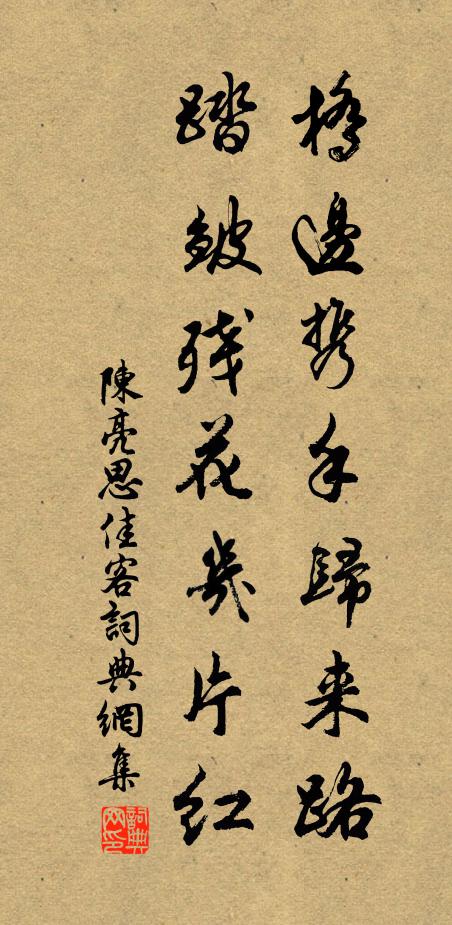 橋邊携手歸来路
踏皴残花幾片紅
陳亮思佳客詞典網集
詞典網印